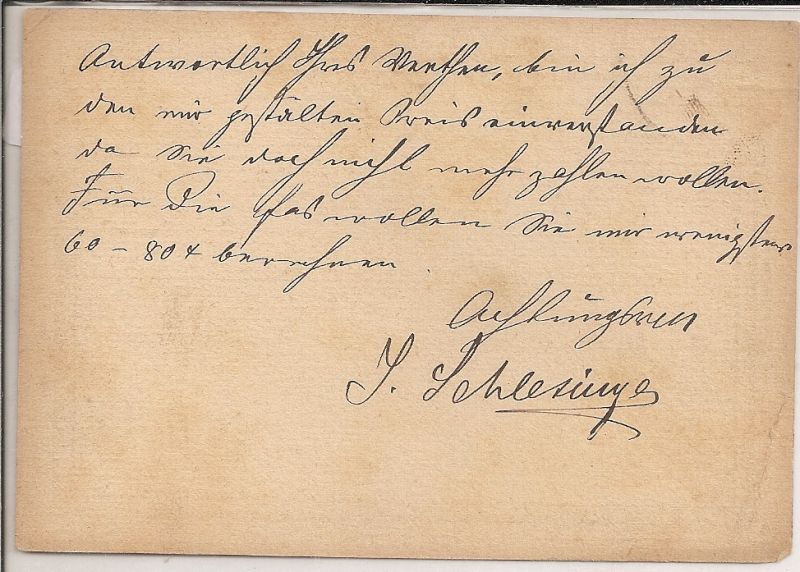 Antwortlich Ihres Werthen, bin ich zu
den mir gestellten Preis einverstanden
da Sie doch nicht mehr zahlen wollen.
Für die wollen Sie mir wenigstens
60 – 80 berechnen.
Achtungsvoll
J. Schlesinger